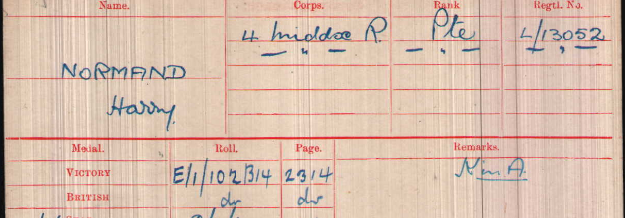 Name. Corps. Rank Regtl. No.
4 Middx R. Pte L/13052
— " — — " — — " —
NORMAND
Harry.
Medal. Roll. Page. Remarks.
VICTORY E/1/102B14 2314
BRITISH do do